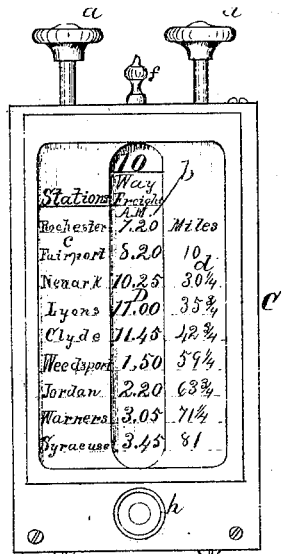 a a
f
10
b
Way
Stations Freight
A.M.
Rochester 7.20 Miles
C
Fairport 8.20 10
d
Newark 10.25 30 1/4
D
Lyons 11.00 35 3/4
C
Clyde 11.45 42 3/4
Weedsport 1.50 59 1/4
Jordan 2.20 63 3/4
Warners 3.05 71 1/4
Syracuse 3.45 81
h